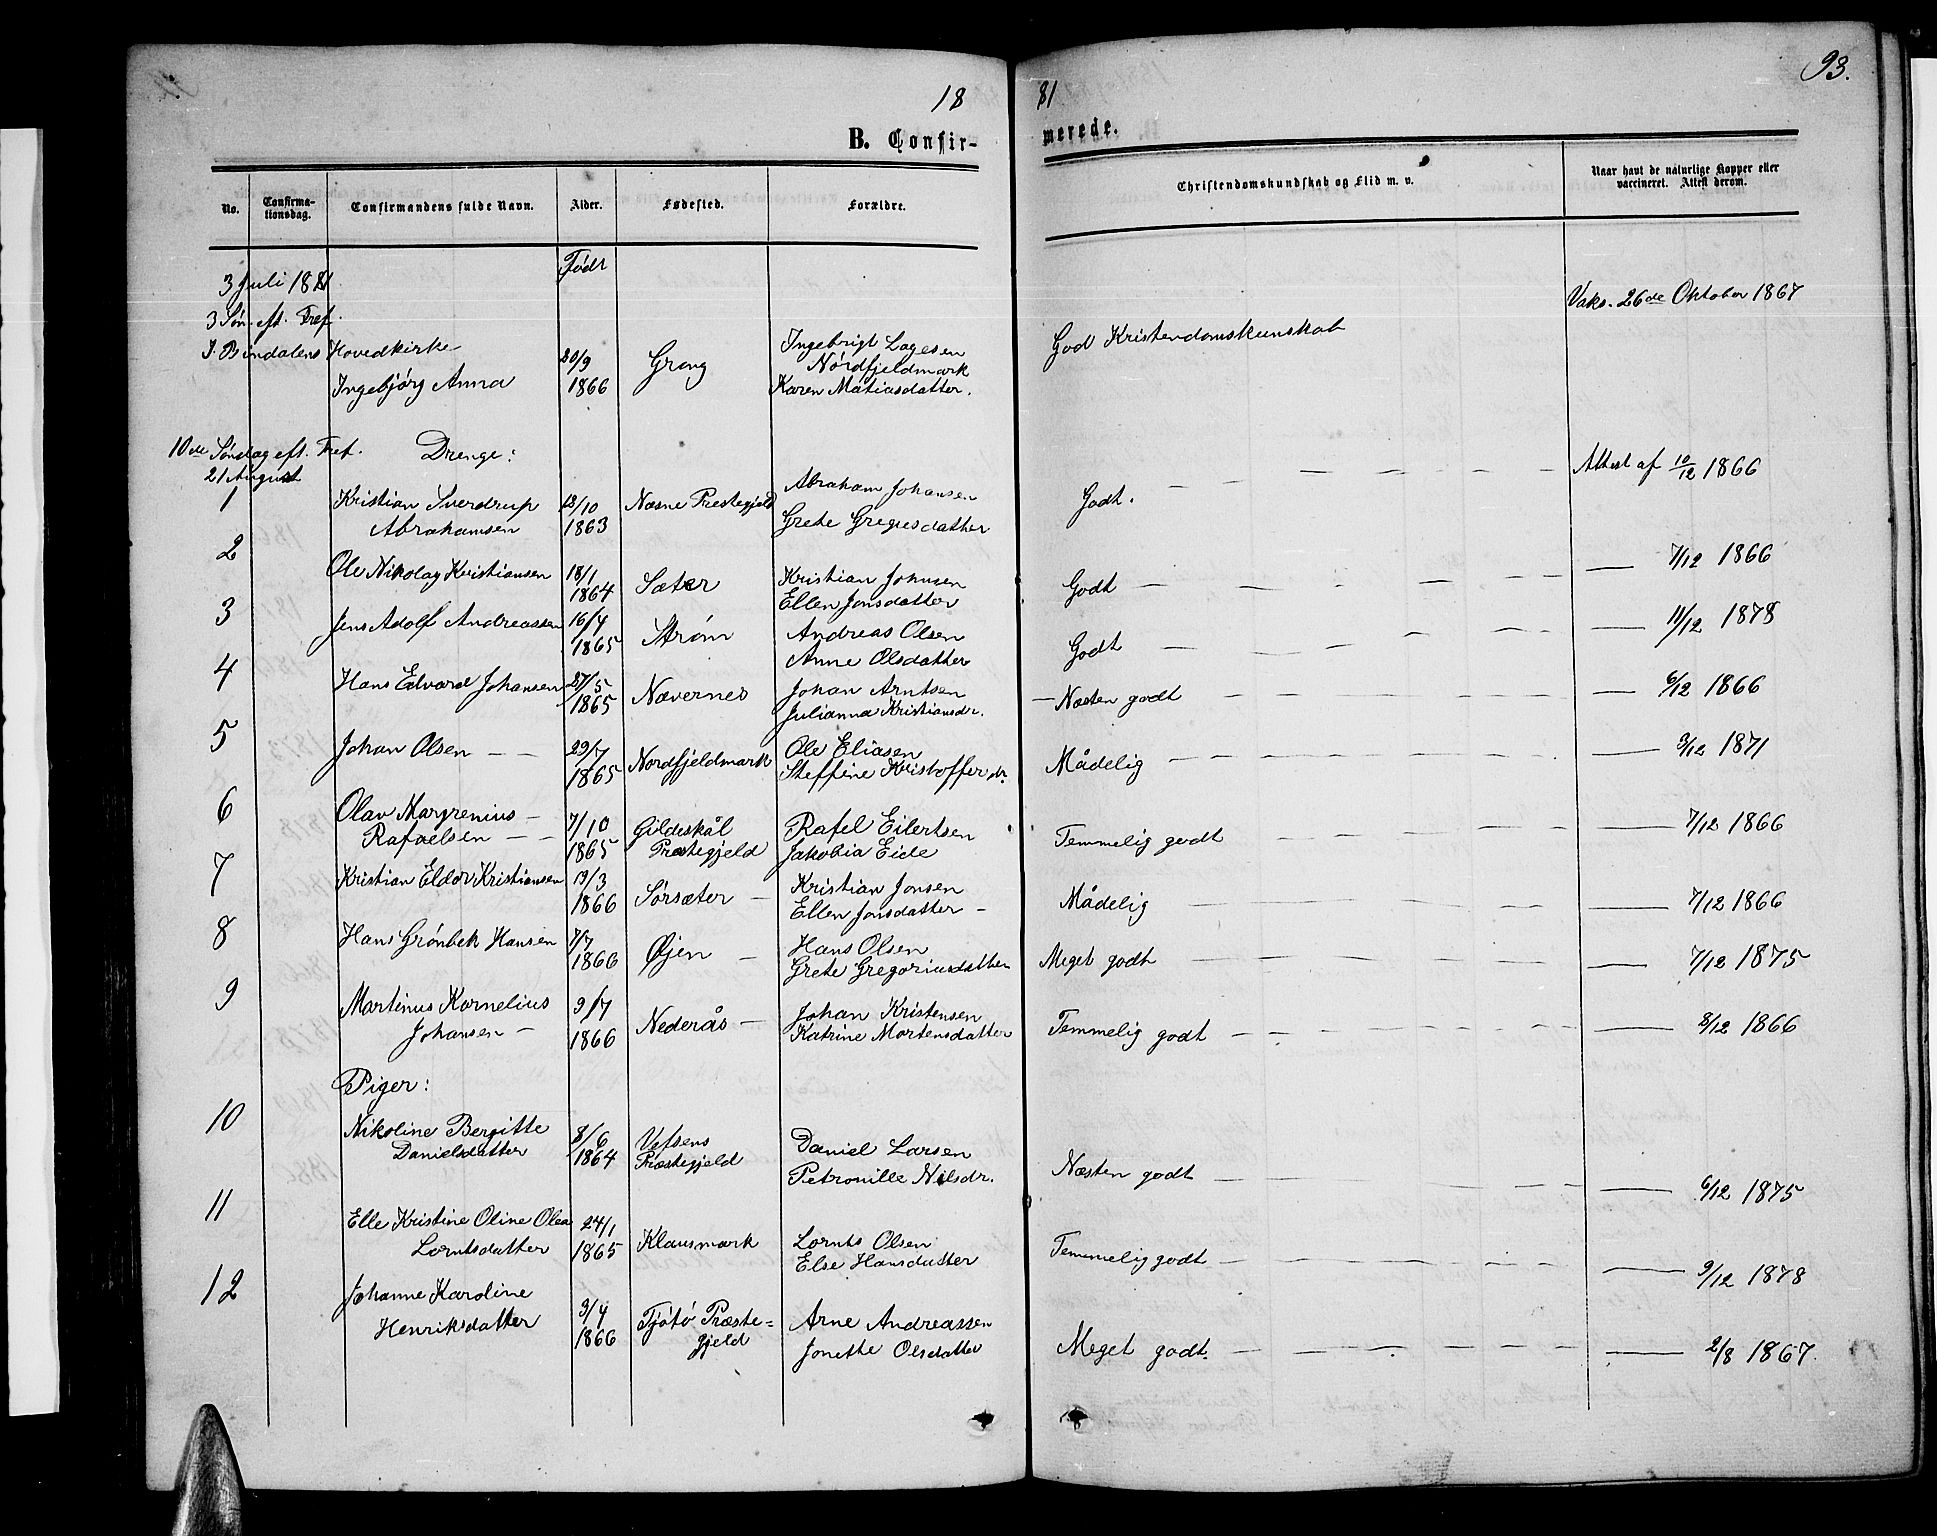 93.
18 81
B. Confirmerede.
No. Confirmationsdag. Confirmandens fulde Navn. Alder. Fødested. Forældre. Christendomskundskab og Flid m. v. Naar havt de naturlige Kopper eller vaccineret. Attest derom.
Født
3 Juli 1881
3 Søn. eft. Tref.
I Bindalens Hovedkirke
Ingebjørg Anna 20/9 1866 Grong Ingebrigt Lagesen Nordfjeldmark Karen Matiasdatter. God Kristendomskunskab Vaks. 26de Oktober 1867
10de Søndag eft. Tref. Drenge:
21 August
1 Kristian Sverdrup Abrahamsen 18/10 1863 Næsne Prestegjeld Abraham Johansen Grete Gregusdatter Godt. — — — — Attest af 10/12 1866
2 Ole Nikolay Kristiansen 18/1 1864 Sæter Kristian Johnsen Ellen Jonsdatter Godt — — — — 7/12 1866
3 Jens Adolf Andreassen 16/4 1865 Strøm Andreas Olsen Anne Olsdatter Godt — — — — 11/12 1878
4 Hans Edvard Johansen 27/5 1865 Nævernes Johan Arntsen Julianna Kristiansdr. — Næsten godt — — — 6/12 1866
5 Johan Olsen — — 29/7 1865 Nordfjeldmark Ole Eliasen Steffine Kristofferdr. Mådelig — — — 3/12 1871
6 Olav Margrenius — Rafaelsen — — 7/10 1865 Gildeskål Præstegjeld Rafel Eilertsen Jakobia Eide Temmelig godt — — — 7/12 1866
7 Kristian Eldor Kristiansen 19/3 1866 Sørsæter — Kristian Jonsen Ellen Jonsdatter — Mådelig — — — 7/12 1866
8 Hans Grønbek Hansen 7/7 1866 Øjen — Hans Olsen Grete Gregoriusdatter Meget godt — — — 7/12 1875
9 Martinus Kornelius Johansen — 9/7 1866 Nederås — Johan Kristensen Katrine Mortensdatter Temmelig godt — — — 8/12 1866
Piger:
10 Nikoline Bergitte Danielsdatter 8/6 1864 Vefsens Præstegjeld Daniel Larsen Petronille Nilsdr. Næsten godt — — — 6/12 1875
11 Elle Kristine Oline Olea Lorntsdatter 24/1 1865 Klausmark Lornts Olsen Else Hansdatter Temmelig godt — — — 9/12 1878
12 Johanne Karoline Henriksdatter 3/4 1866 Tjøtø Præstegjeld Arne Andreassen Jonette Olsdatter Meget godt. — — — 2/8 1867.